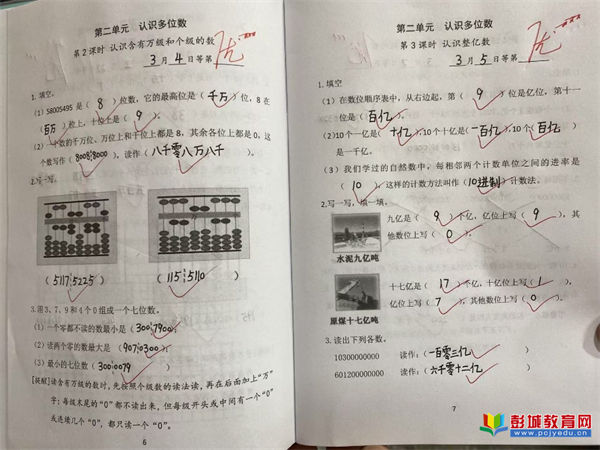 第二单元 认识多位数
第2课时 认识含有万级和个级的数
3月4日等第 优
1. 填空。
(1) 58005495是( 8 )位数,它的最高位是( 千万 )位,8在
( 百万 )位上,十位上是( 9 )。
(2) 一个数的千万位、万位上和千位上都是8,其余各位上都是0,这
个数写作( 8008 8000 ),读作( 八千零八万八千 )。
2. 写一写。
( 5117 5225 ) ( 115 5110 )
3. 用3、7、9和4个0组成一个七位数。
(1) 一个零都不读的数最小是( 300 7900 )。
(2) 读两个零的数最大是( 907 0300 )。
(3) 最小的七位数( 300 0079 )
[提醒]读含有万级的数时,先按照个级数的读法读,再在后面加上“万”
字;每级末尾的“0”都不读出来,但每级开头或中间有一个“0”
或连续几个“0”,都只读一个“0”。
6
第二单元 认识多位数
第3课时 认识整亿数
3月5日等第 优
1. 填空
(1) 在数位顺序表中,从右边起,第( 9 )位是亿位,第十一
位是( 百亿 )。
(2) 10个一亿是( 十亿 ),10个十亿是( 一百亿 ),10个( 百亿 )
是一千亿。
(3) 我们学过的自然数中,每相邻两个计数单位之间的进率是
( 10 ),这样的计数方法叫作( 10进制 )计数法。
2. 写一写,填一填。
九亿是( 9 )个亿,亿位上写( 9 ),其
他数位上写( 0 )。
水泥九亿吨
十七亿是( 17 )个亿,十亿位上写( 1 ),
亿位上写( 7 ),其他数位上写( 0 )。
原煤十七亿吨
3. 读出下列各数。
10300000000 读作:( 一百零三亿 )
601200000000 读作:( 六千零十二亿 )
7
彭城教育网
www.pcjyedu.cn